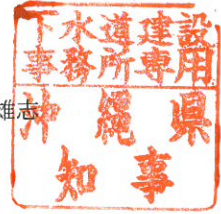 下水道建設
事務所専用
雄志
沖縄県
知事